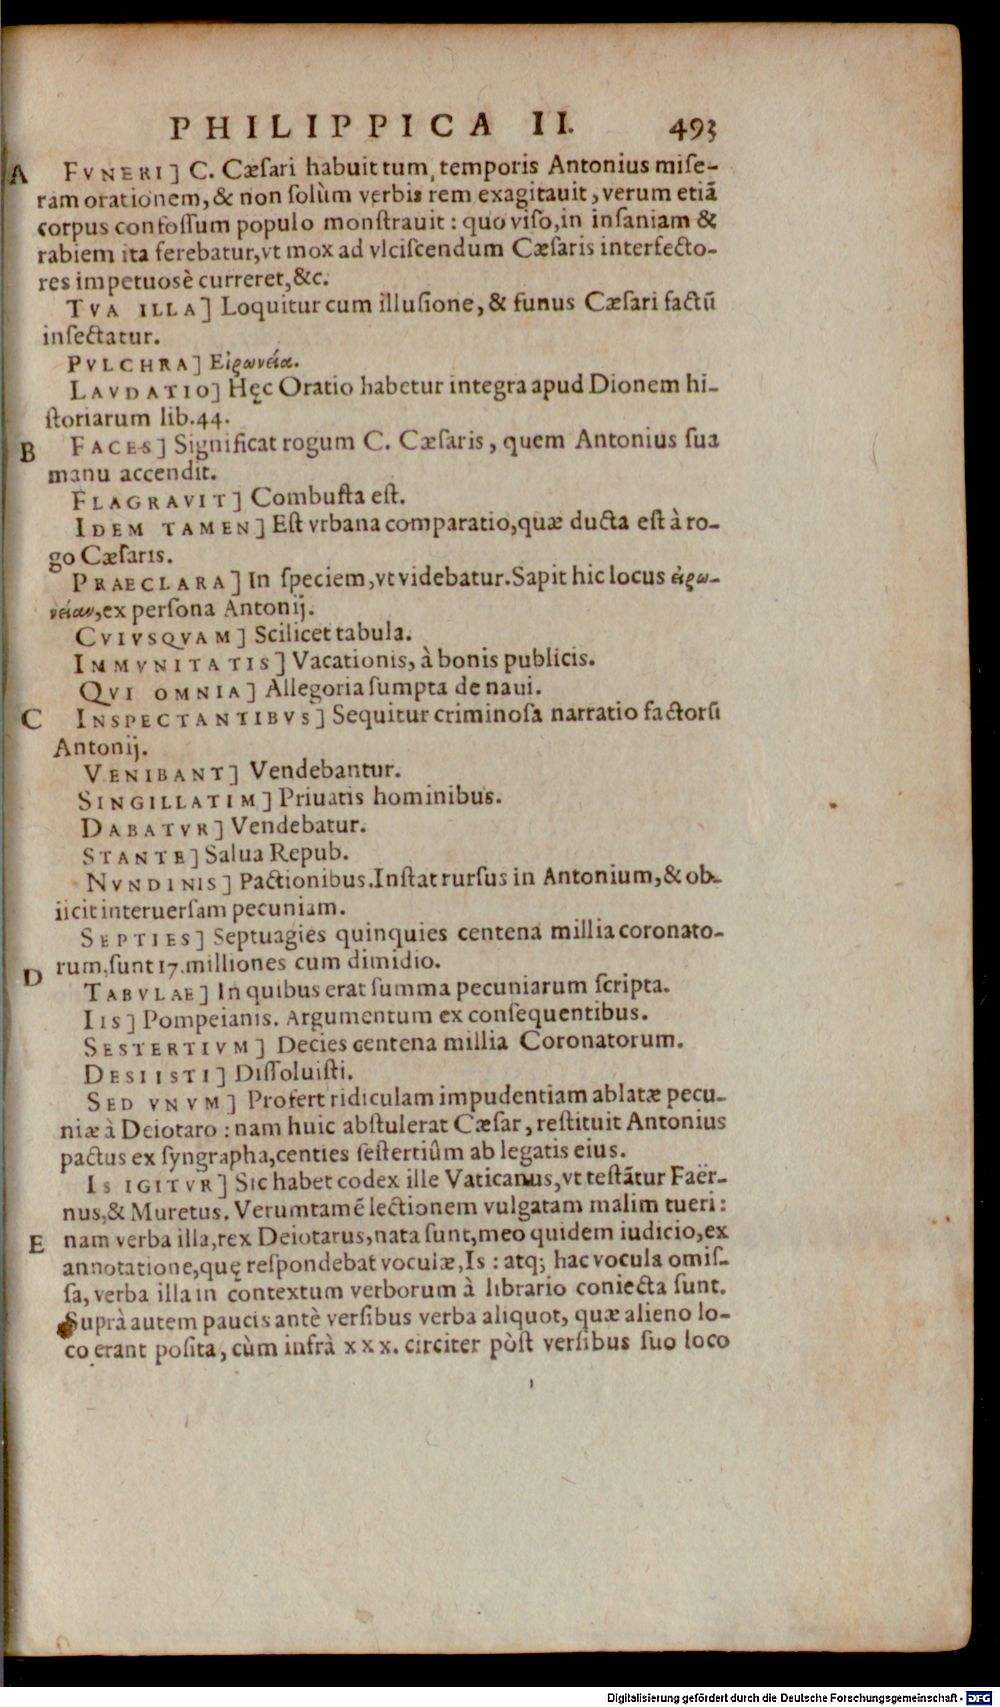 PHILIPPICA II. 493
A FVNERI] C. Cæsari habuit tum temporis Antonius mise-
ram orationem, & non solùm verbis rem exagitauit, verum etiã
corpus confossum populo monstrauit : quo viso, in insaniam &
rabiem ita ferebatur, vt mox ad vlciscendum Cæsaris interfecto-
res impetuosè curreret, &c.
TVA ILLA] Loquitur cum illusione, & funus Cæsari factũ
insectatur.
PVLCHRA] Εἰρωνεία.
LAVDATIO] Hęc Oratio habetur integra apud Dionem hi-
storiarum lib. 44.
B FACES] Significat rogum C. Cæsaris, quem Antonius sua
manu accendit.
FLAGRAVIT] Combusta est.
IDEM TAMEN] Est vrbana comparatio, quæ ducta est à ro-
go Cæsaris.
PRAECLARA] In speciem, vt videbatur. Sapit hic locus εἰρω-
νείαν, ex persona Antonij.
CVIVSQVAM] Scilicet tabula.
IMMVNITATIS] Vacationis, à bonis publicis.
QVI OMNIA] Allegoria sumpta de naui.
C INSPECTANTIBVS] Sequitur criminosa narratio factorũ
Antonij.
VENIBANT] Vendebantur.
SINGILLATIM] Priuatis hominibus.
DABATVR] Vendebatur.
STANTE] Salua Repub.
NVNDINIS] Pactionibus. Instat rursus in Antonium, & ob-
iicit interuersam pecuniam.
SEPTIES] Septuagies quinquies centena millia coronato-
D rum, sunt 17. milliones cum dimidio.
TABVLAE] In quibus erat summa pecuniarum scripta.
IIS] Pompeianis. Argumentum ex consequentibus.
SESTERTIVM] Decies centena millia Coronatorum.
DESIISTI] Dissoluisti.
SED VNVM] Profert ridiculam impudentiam ablatæ pecu-
niæ à Deiotaro : nam huic abstulerat Cæsar, restituit Antonius
pactus ex syngrapha, centies sestertiûm ab legatis eius.
IS IGITVR] Sic habet codex ille Vaticanus, vt testãtur Faër-
nus, & Muretus. Verumtamẽ lectionem vulgatam malim tueri :
E nam verba illa, rex Deiotarus, nata sunt, meo quidem iudicio, ex
annotatione, quę respondebat voculæ, Is : atq; hac vocula omis-
sa, verba illa in contextum verborum à librario coniecta sunt.
Suprà autem paucis antè versibus verba aliquot, quæ alieno lo-
co erant posita, cùm infrà xxx. circiter pòst versibus suo loco
Digitalisierung gefördert durch die Deutsche Forschungsgemeinschaft - DFG